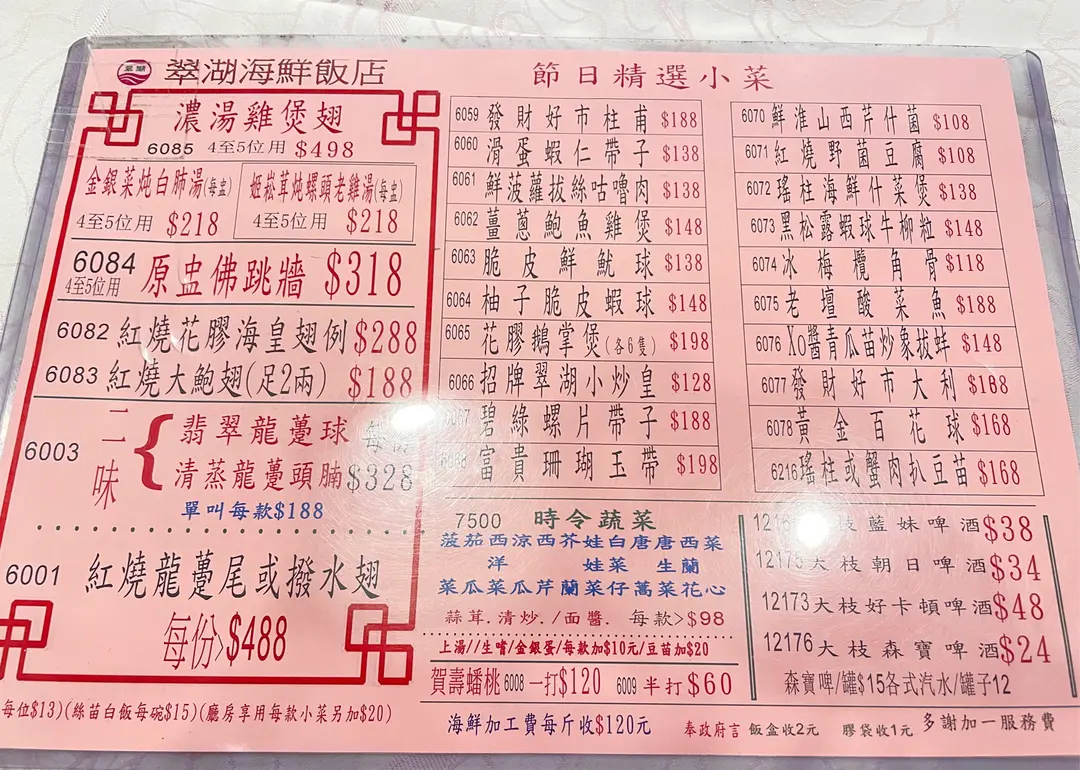 翠湖
翠湖海鮮飯店
節日精選小菜
濃湯雞煲翅
6085 4至5位用 $498
金銀菜炖白肺湯(每盅)
4至5位用 $218
姬崧茸炖螺頭老雞湯(每盅)
4至5位用 $218
6084 原盅佛跳牆 $318
4至5位用
6082 紅燒花膠海皇翅例 $288
6083 紅燒大鮑翅(足2兩) $188
6003 二味 { 翡翠龍躉球 每份
清蒸龍躉頭腩 $328
單叫每款$188
6001 紅燒龍躉尾或撥水翅
每份>$488
6059 發財好市柱甫 $188
6060 滑蛋蝦仁帶子 $138
6061 鮮菠蘿拔絲咕嚕肉 $138
6062 薑蔥鮑魚雞煲 $148
6063 脆皮鮮魷球 $138
6064 柚子脆皮蝦球 $148
6065 花膠鵝掌煲(各6隻) $198
6066 招牌翠湖小炒皇 $128
6067 碧綠螺片帶子 $188
6068 富貴珊瑚玉帶 $198
6070 鮮淮山西芹什菌 $108
6071 紅燒野菌豆腐 $108
6072 瑤柱海鮮什菜煲 $138
6073 黑松露蝦球牛柳粒 $148
6074 冰梅欖角骨 $118
6075 老壇酸菜魚 $188
6076 Xo醬青瓜苗炒象拔蚌 $148
6077 發財好市大利
6078 黃金百花球 $168
6216 瑤柱或蟹肉扒豆苗 $168
7500 時令蔬菜
菠茄西涼西芥娃白唐唐西菜
洋 娃菜 生蘭
菜瓜菜瓜芹蘭菜仔蒿菜花心
蒜茸.清炒./面醬. 每款>$98
上湯//生嗜/金銀蛋/每款加$10元/豆苗加$20
賀壽蟠桃 6008 一打$120 6009 半打$60
枝藍妹啤酒 $38
大枝朝日啤酒 $34
12173 大枝好卡頓啤酒 $48
12176 大枝森寶啤酒 $24
森寶啤/罐$15各式汽水/罐子12
每位$13)(絲苗白飯每碗$15)(廳房享用每款小菜另加$20)
海鮮加工費每斤收$120元
奉政府言 飯盒收2元 膠袋收1元 多謝加一服務費